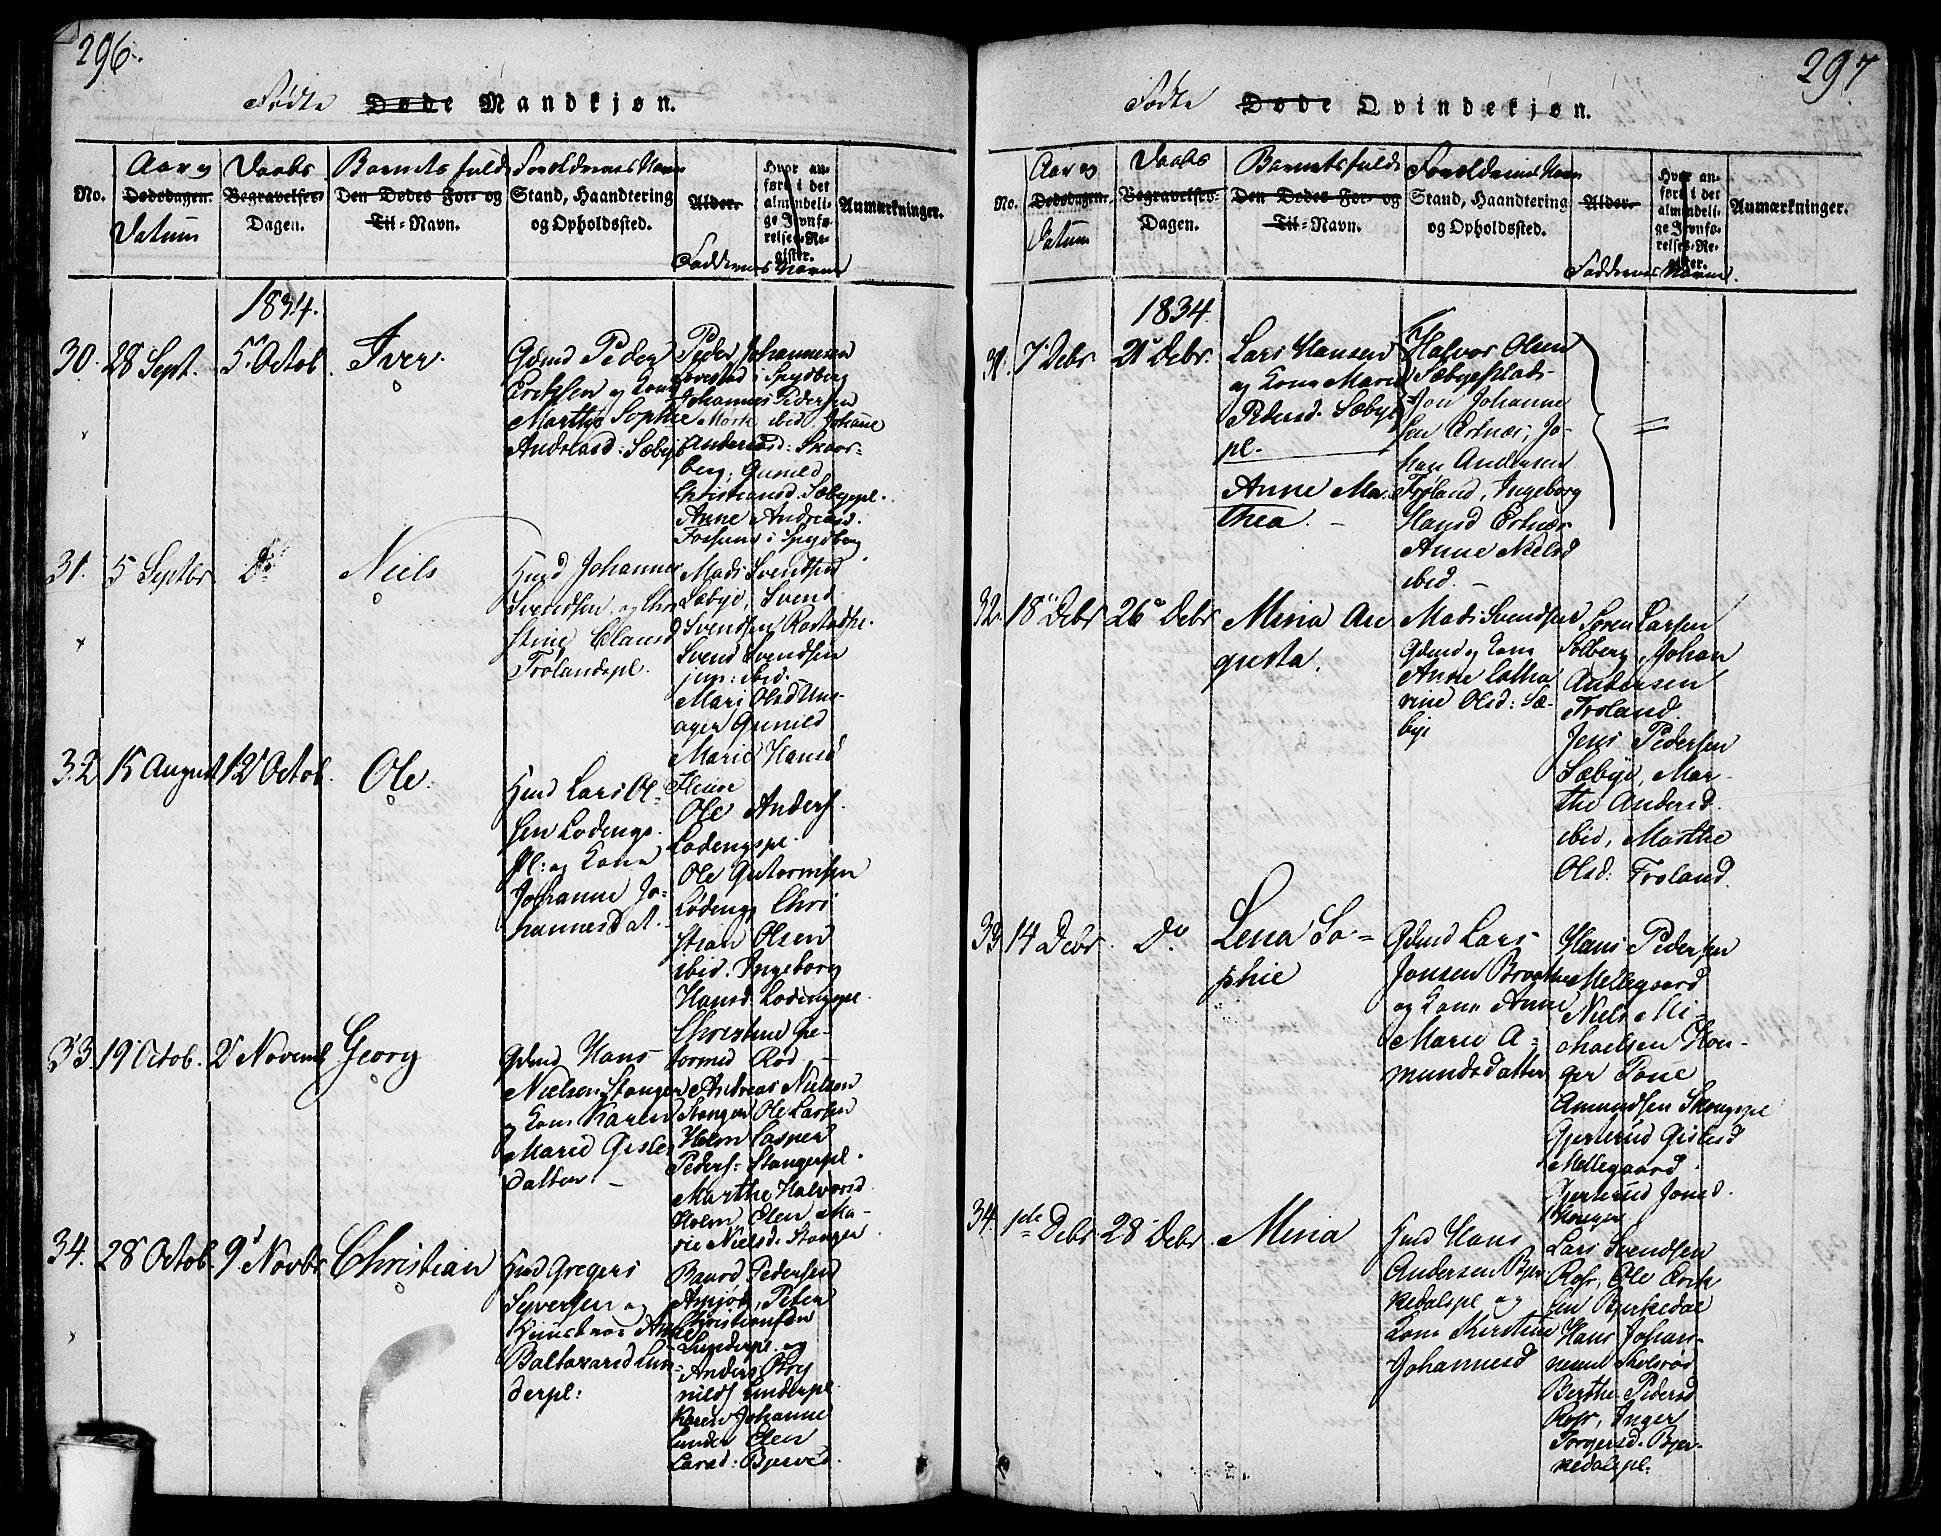 296.
Fødte Døde Mandkjøn.
No.
Aar og
Dødsdagen.
Datum
Daabs
Begravelses-
Dagen.
Barnets fulde
Den Dødes For- og
Til-Navn.
Forældrenes Navn
Stand, Haandtering
og Opholdssted.
Alder.
Hvor an-
ført i det
almindeli-
ge Jevnfø-
relses-Re-
gister.
Faddernes Navne
Anmærkninger.
1834.
30. 28 Sept. 5 Octob. Iver.
Gdmd Peder
Ericksen og Kone
Marthe Sophie
Andreasd: Sæbye
Peder Johannesen
Lovestad i Spydberg
Johannes Pedersen
Mørk ibid. Johanne
Andersd: Skaar-
berg, Gunild
Christiansd. Sæbyepl.
Anne Andreasd.
Fossum i Spydberg
31. 5 Septbr Do Niels
Huusmd Johannes
Svendsen og Chri
stine Elausd
Frolandspl.
Mads Svendsen
Sæbye, Svend
Svendsen Rostadpl.
Svend Svendsen
jun: ibid.
Mari Olsd
Gunild
Marie Hansd
32 15 August 12 Octob. Ole.
Huusmd Lars Ol-
sen Lodengs-
pl: og Kone
Johanne Jo-
hannesdat.
Ole Anders.
Lodengspl.
Ole Gutormsen
Lødeng, Chri
stian Olsen
ibid. Ingeborg
Hansd. Lodengspl.
Christine Gu-
tormsd Rød
33. 19 Octob. 2 Novemb Georg
Gdmd Hans
Nielsen Stanger
og Kone Karen
Marie Gisle-
datter
Andreas Nielsen
Stanger Ole Larsen
Holm Casper
Peders: Stangerpl.
Marthe Halvorsd
Holm, Elen Ma-
rie Nielsd: Stanger
34. 28 Octob. 9 Novbr Christian
Huusmd Gregers
Syversen og
Anne
Baltzarsd Lun-
derpl:
Baard Pedersen
Peter
Christiansen
Lunderpl. og
Anders
Lunderpl.
Karen Johanne
Lunder Elen
Larsd: Bjerved.
297
Fødte Døde Qvindekjøn.
No.
Aar og
Dødsdagen.
Datum
Daabs
Begravelses-
Dagen.
Barnets fulde
Den Dødes For- og
Til-Navn.
Forældrenes Navn
Stand, Haandtering
og Opholdssted.
Alder.
Hvor an-
ført i det
almindeli-
ge Jevnfø-
relses-Re-
gister.
Faddernes Navne
Anmærkninger.
1834.
31. 7 Debr 21 Debr.
Lars Hansen
og Kone Marie
Pedersd. Sæbye
pl.
Anne Ma-
thea.
Halvor Olsen
Sæbyeplads
Jon Johanne
sen Ertnæs, Jo-
han Andersen
Frøland, Ingeborg
Hansd Ertnæs
Anne Nielsd
ibid.
32. 18 Debr 26 Debr Mina Au
gusta.
Mads Svendsen
Gdmd og Kone
Anne Catha
rine Olsd: Sæ-
bye
Søren Larsen
Solberg, Johan
Andersen
Froland.
Jens Pedersen
Sæbye, Mar-
the Andersd.
ibid, Marthe
Olsd: Froland.
33 14 Debr. Do. Lena So-
phie
Gdmd Lars
Jonsen
og Kone Anne
Marie A-
mundsdatter
Hans Pedersen
Mellegaard
Niels Mi-
chaelsen Hou-
ger Tone
Amundsen Skougspl
Gjertrud Gislesd
Mellegaard.
Gjertrud Jonsd.
Houger
34. 1de Debr 28 Debr. Mina
Huusmd Hans
Andersen Bjer
kedalspl og
Kone Kirstine
Johannesd
Lars Svendsen
Ross, Ole Erik
sen Bjerkedal
Hans Johan-
nesen
Berthe Pedersd
Ross, Inger
Torgersd. Bjer-
kedalspl.